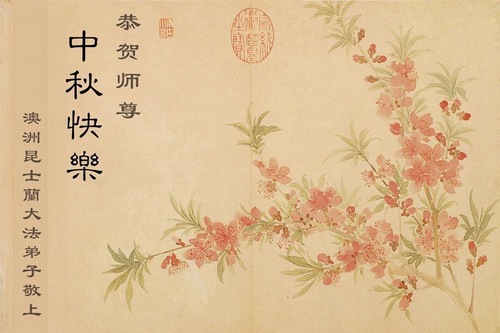 恭贺师尊
中秋快樂
澳洲昆士蘭大法弟子敬上